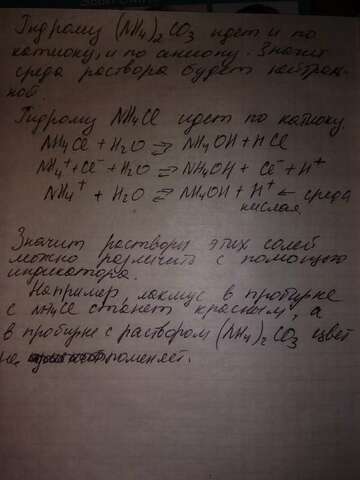 Гидролиз (NH₄)₂CO₃ идет и по
катиону, и по аниону. Значит
среда раствора будет нейтраль-
ной.
Гидролиз NH₄Cl идет по катиону.
NH₄Cl + H₂O ⇄ NH₄OH + HCl
NH₄⁺ + Cl⁻ + H₂O ⇄ NH₄OH + Cl⁻ + H⁺
NH₄⁺ + H₂O ⇄ NH₄OH + H⁺ ← среда
кислая
Значит растворы этих солей
можно различить с помощью
индикатора.
Например, лакмус в пробирке
с NH₄Cl станет красным, а
в пробирке с раствором (NH₄)₂CO₃ цвет
не поменяет.